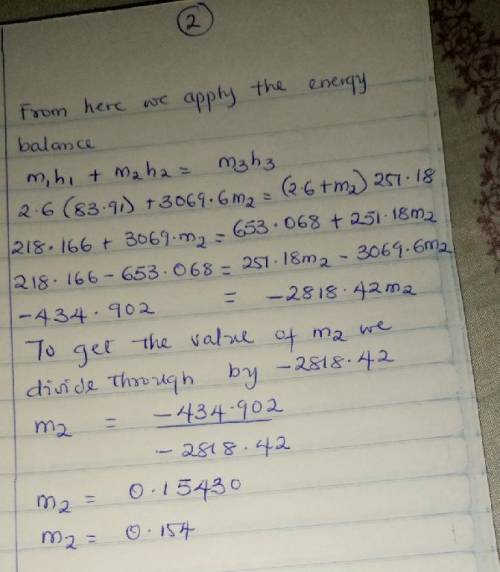 2
From here we apply the energy
balance
m₁h₁ + m₂h₂ = m₃h₃
2.6 (83.91) + 3069.6m₂ = (2.6 + m₂) 251.18
218.166 + 3069.m₂ = 653.068 + 251.18m₂
218.166 - 653.068 = 251.18m₂ - 3069.6m₂
-434.902 = -2818.42m₂
To get the value of m₂ we
divide through by -2818.42
m₂ = -434.902
-2818.42
m₂ = 0.15430
m₂ = 0.154